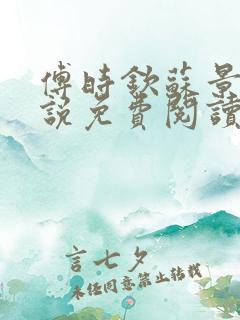 傅時欽蘇景
說免費閱讀
言七夕
未经同意禁止转载